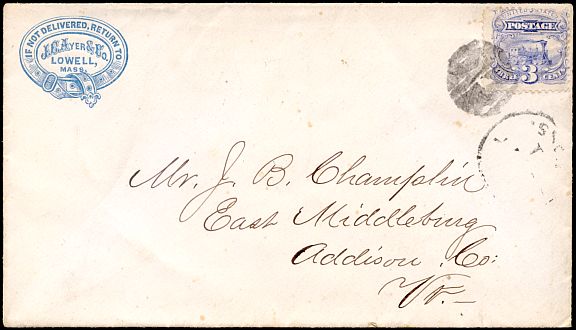 IF NOT DELIVERED, RETURN TO
J.C. AYER & Co.
LOWELL,
MASS.
POSTAGE
THREE 3 CENTS
Mr. J. B. Champlin
East Middleburg
Addison Co:
Vt.